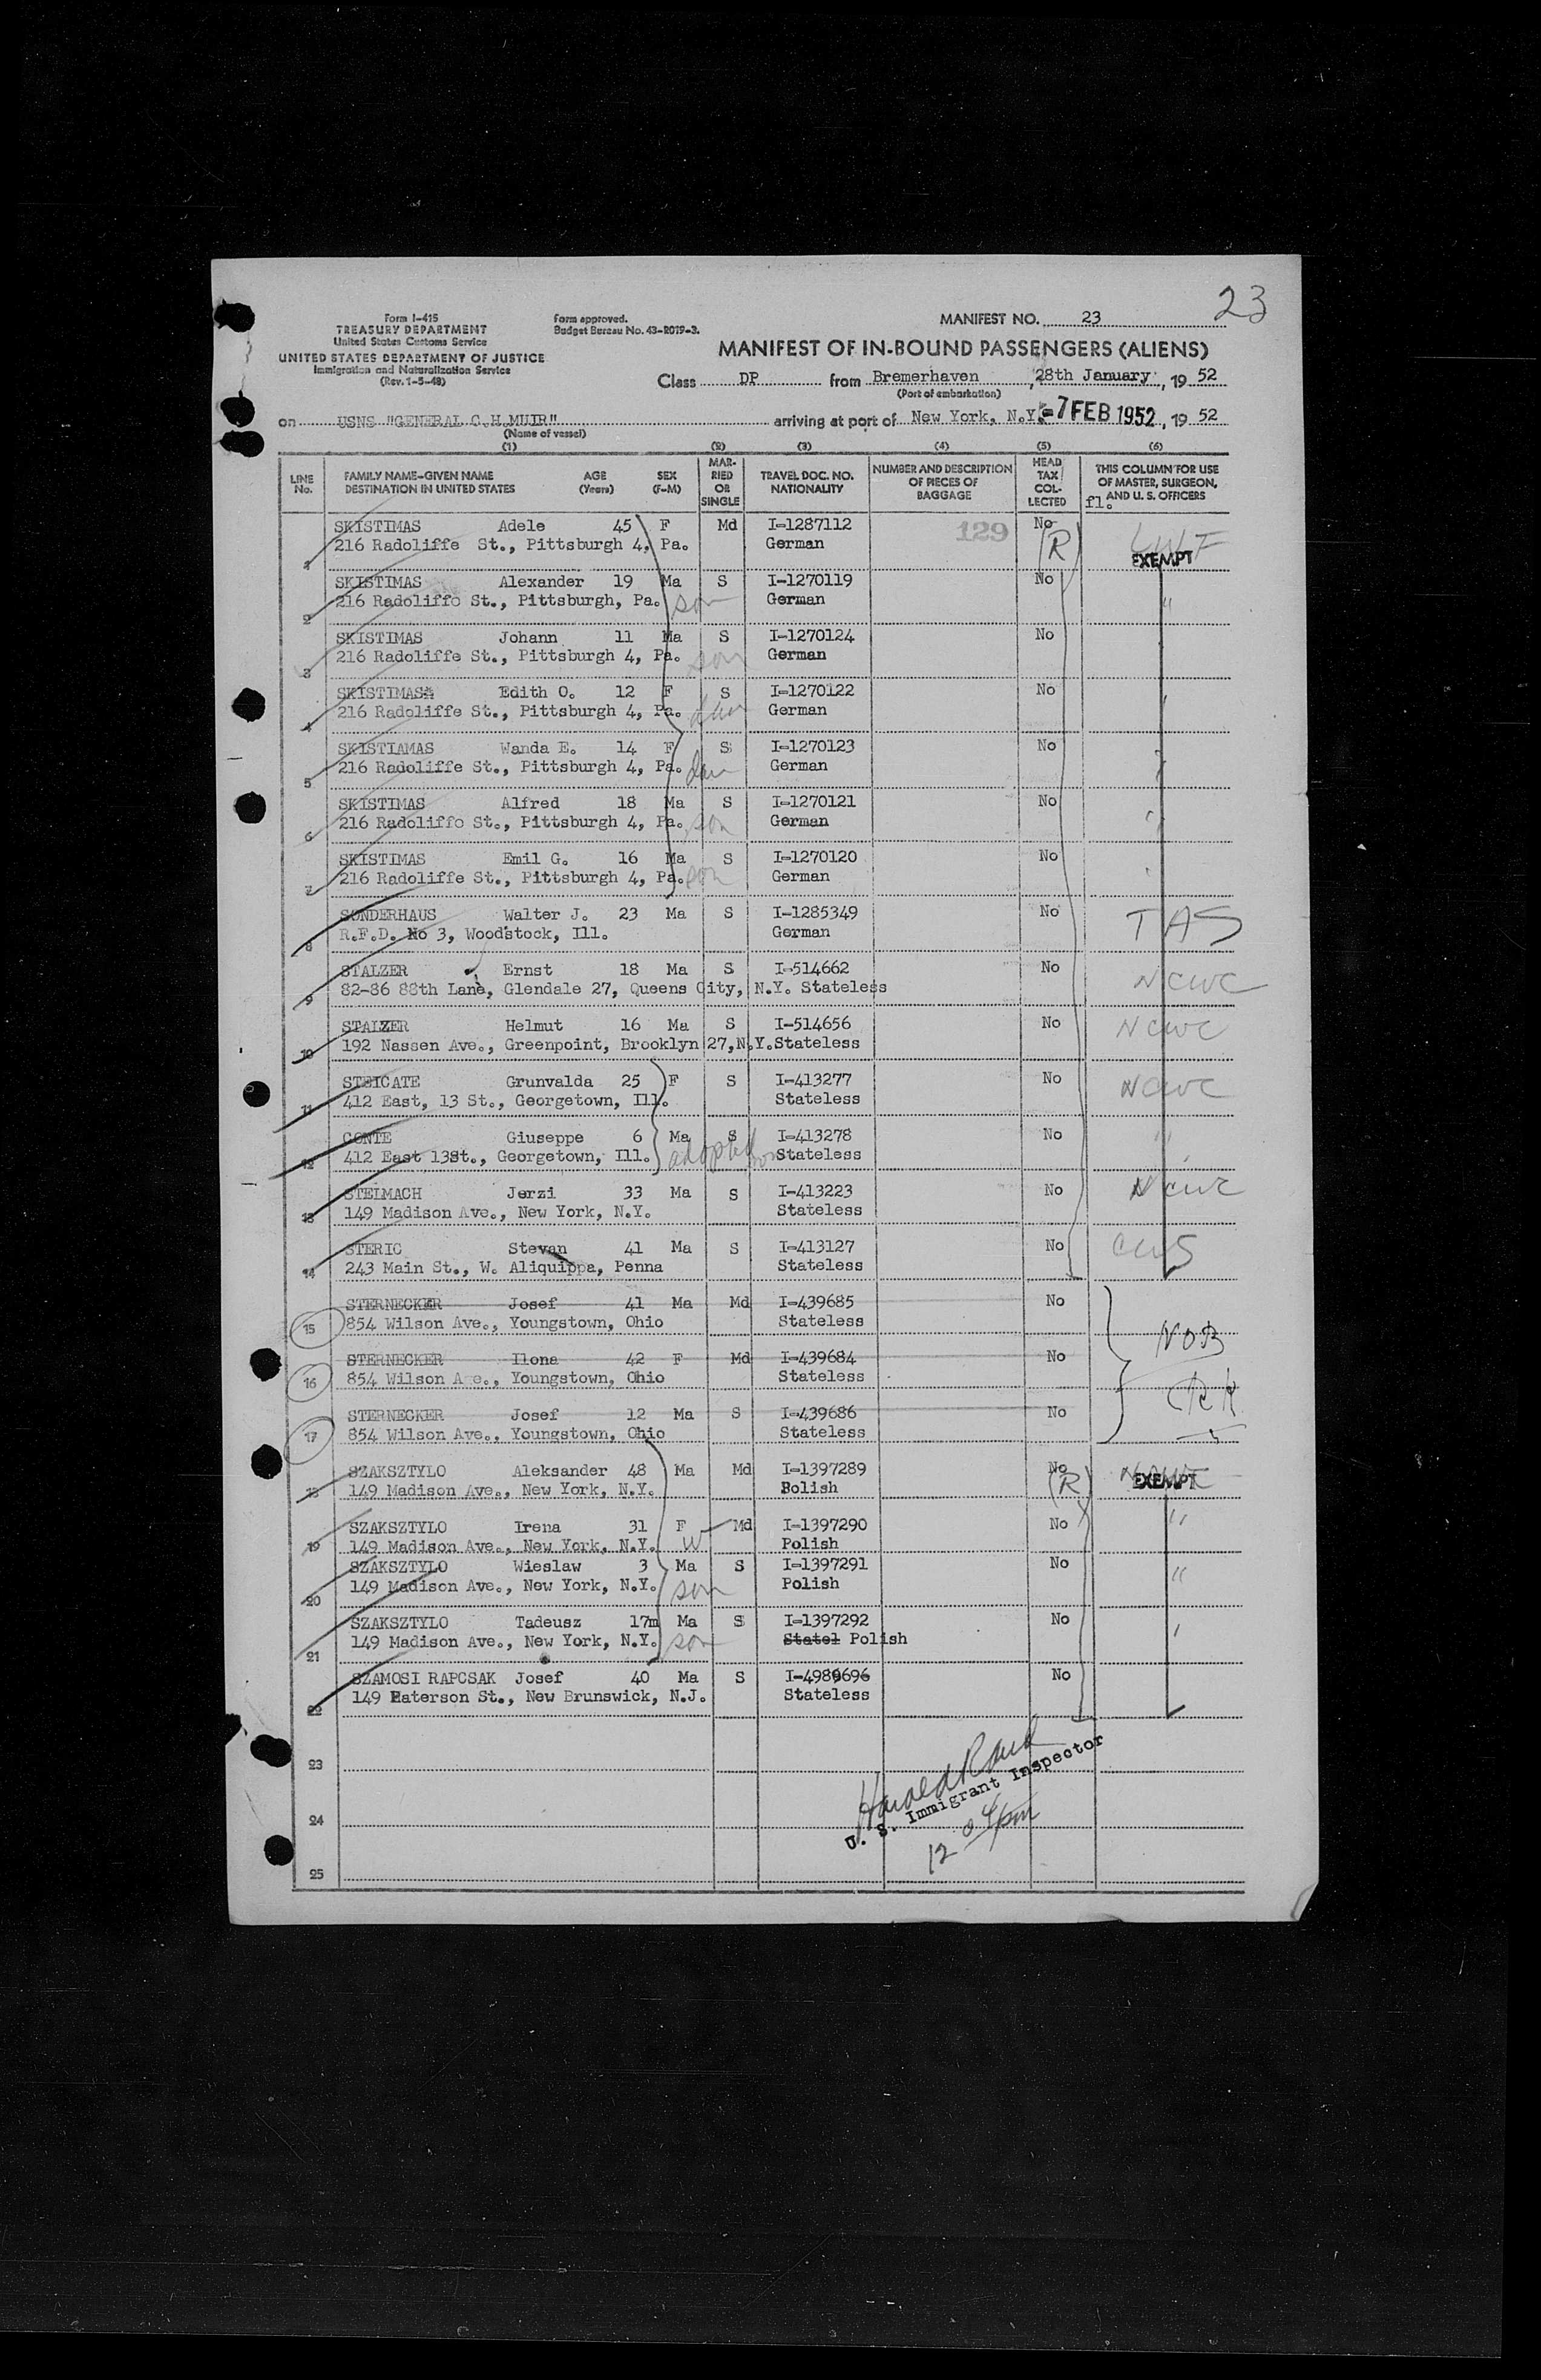 23
Form I-415
TREASURY DEPARTMENT
United States Customs Service
UNITED STATES DEPARTMENT OF JUSTICE
Immigration and Naturalization Service
(Rev. 1-5-48)
Form approved.
Budget Bureau No. 43-R019-3.
MANIFEST NO. 23
MANIFEST OF IN-BOUND PASSENGERS (ALIENS)
Class DP from Bremerhaven, 28th January, 19 52
(Port of embarkation)
on USNS "GENERAL C.H.MUIR" arriving at port of New York, N.Y. -7 FEB 1952, 19 52
(Name of vessel)
(1) (2) (3) (4) (5) (6)
LINE No. FAMILY NAME-GIVEN NAME DESTINATION IN UNITED STATES AGE (Years) SEX (F-M) MARRIED OR SINGLE TRAVEL DOC. NO. NATIONALITY NUMBER AND DESCRIPTION OF PIECES OF BAGGAGE HEAD TAX COLLECTED THIS COLUMN FOR USE OF MASTER, SURGEON, AND U. S. OFFICERS
fl.
SKISTIMAS Adele 45 F Md I-1287112 129 No LWF
1 216 Radcliffe St., Pittsburgh 4, Pa. German (R) EXEMPT
SKISTIMAS Alexander 19 Ma S I-1270119 No
2 216 Radcliffe St., Pittsburgh, Pa. son German "
SKISTIMAS Johann 11 Ma S I-1270124 No
3 216 Radcliffe St., Pittsburgh 4, Pa. son German
SKISTIMAS Edith O. 12 F S I-1270122 No
4 216 Radcliffe St., Pittsburgh 4, Pa. dau German
SKISTIAMAS Wanda E. 14 F S I-1270123 No
5 216 Radcliffe St., Pittsburgh 4, Pa. dau German
SKISTIMAS Alfred 18 Ma S I-1270121 No
6 216 Radcliffe St., Pittsburgh 4, Pa. son German
SKISTIMAS Emil G. 16 Ma S I-1270120 No
7 216 Radcliffe St., Pittsburgh 4, Pa. son German
SONDERHAUS Walter J. 23 Ma S I-1285349 No TAS
8 R.F.D. No 3, Woodstock, Ill. German
STALZER Ernst 18 Ma S I-514662 No NCWC
9 82-86 88th Lane, Glendale 27, Queens City, N.Y. Stateless
STALZER Helmut 16 Ma S I-514656 No NCWC
10 192 Nassen Ave., Greenpoint, Brooklyn 27,N.Y.Stateless
STEICATE Grunvalda 25 F S I-413277 No NCWC
11 412 East, 13 St., Georgetown, Ill. Stateless
CONTE Giuseppe 6 Ma S I-413278 No "
12 412 East 13St., Georgetown, Ill. adopted son Stateless
STELMACH Jerzi 33 Ma S I-413223 No NCWC
13 149 Madison Ave., New York, N.Y. Stateless
STERIC Stevan 41 Ma S I-413127 No CWS
14 243 Main St., W. Aliquippa, Penna Stateless
STERNECKER Josef 41 Ma Md I-439685 No
15 854 Wilson Ave., Youngstown, Ohio Stateless NOB
STERNECKER Ilona 42 F Md I-439684 No
16 854 Wilson Ave., Youngstown, Ohio Stateless
STERNECKER Josef 12 Ma S I-439686 No
17 854 Wilson Ave., Youngstown, Ohio Stateless
SZAKSZTYLO Aleksander 48 Ma Md I-1397289 No
18 149 Madison Ave., New York, N.Y. Polish (R) EXEMPT
SZAKSZTYLO Irena 31 F Md I-1397290 No "
19 149 Madison Ave., New York, N.Y. W Polish
SZAKSZTYLO Wieslaw 3 Ma S I-1397291 No "
20 149 Madison Ave., New York, N.Y. son Polish
SZAKSZTYLO Tadeusz 17m Ma S I-1397292 No
21 149 Madison Ave., New York, N.Y. son Statel Polish
SZAMOSI RAPCSAK Josef 40 Ma S I-4989696 No
22 149 Paterson St., New Brunswick, N.J. Stateless
23
24
25
Harold
U. S. Immigrant Inspector
12 04 pm